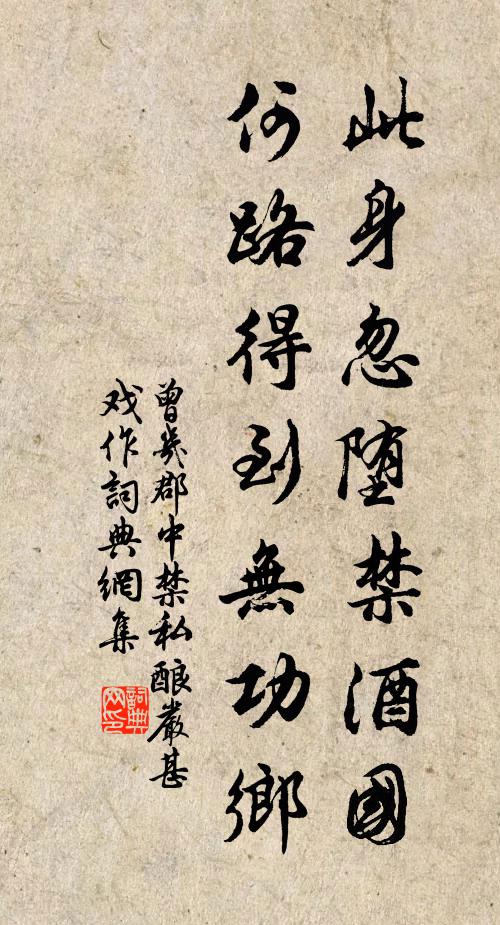 此身忽堕禁酒國
何路得到無功鄉
曾幾郡中禁私酿嚴甚
戏作詞典網集
詞典网印